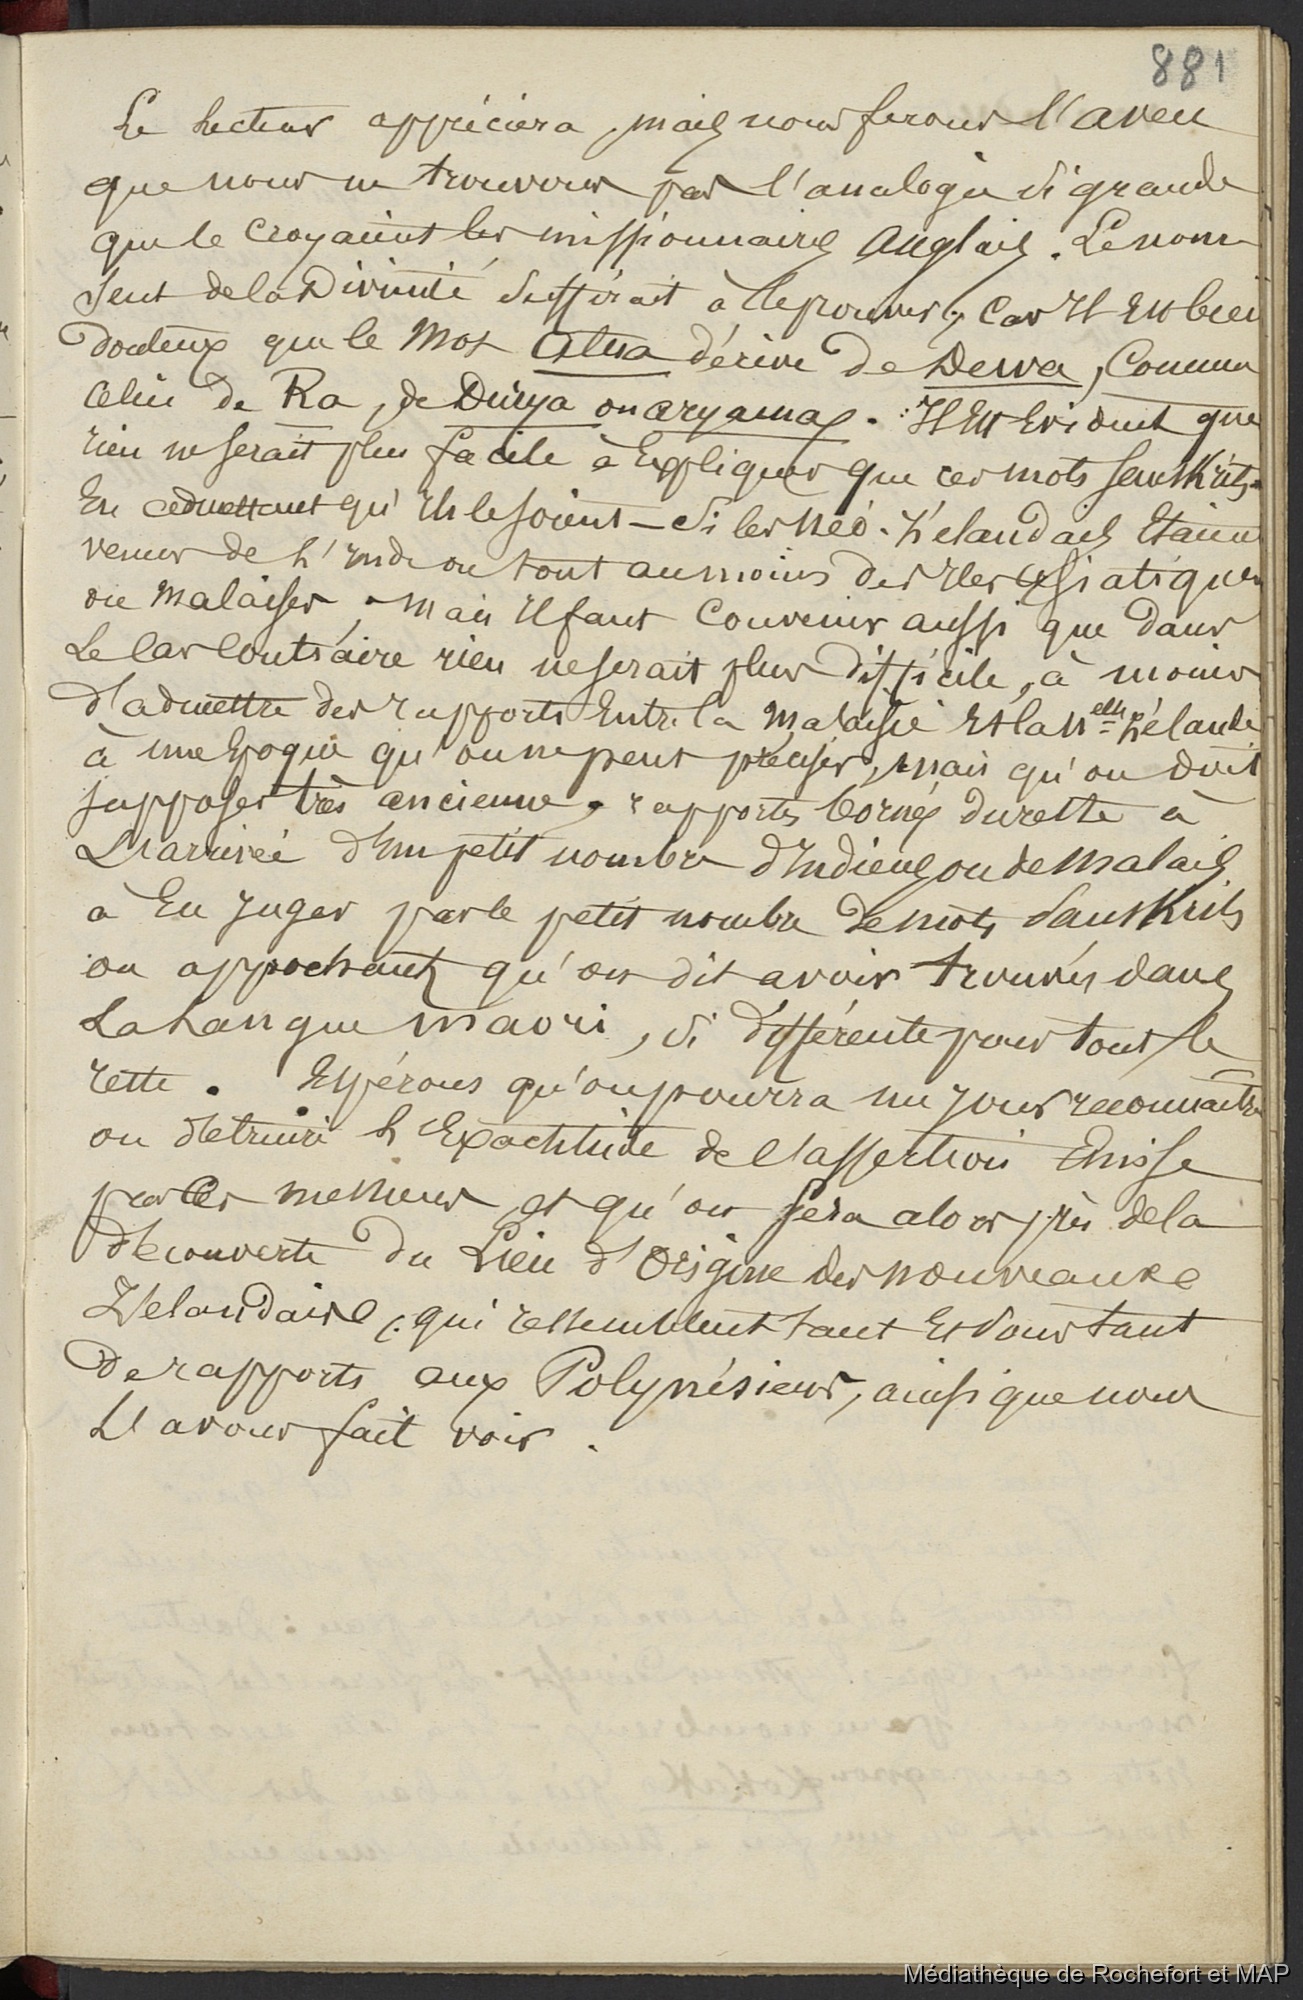 881
Le Lecteur appréciera, mais nous ferons l'aveu
que nous ne trouvons pas l'analogie si grande
que le croyaient les missionnaires Anglais. Le nom
seul de la Divinité suffirait à le prouver, car Il Est bien
douteux que le Mot Atua dérive de Dewa, Comme
Celui de Ra, de Surya ou aryamas. Il Est Evident que
rien ne serait plus facile à Expliquer que ces mots Sanskrits
En admettant qu'Ils le soient – si les Néo-Zélandais Etaient
venus de l'Inde ou tout au moins des Iles Asiatiques
ou Malaises, Mais Il faut Convenir aussi que dans
Le Cas Contraire rien ne serait plus difficile, à moins
d'admettre des rapports Entre la Malaisie Et la Nelle Zélande
à une Epoque qu'on ne peut préciser, mais qu'on doit
supposer très ancienne, rapports bornés du reste à
L'arrivée d'un petit nombre d'Indiens ou de Malais
à En Juger par le petit nombre de mots Sanskrits
ou approchants qu'on dit avoir trouvés dans
La Langue Maori, si différente pour tout le
reste. Espérons qu'on pourra un Jour reconnaitre
ou détruire L'Exactitude de l'assertion Emise
par Ces Messieurs et qu'on sera alors près de la
découverte du Lieu d'Origine des Nouveaux
Zélandais, qui ressemblent tant Et Sous tant
de rapports aux Polynésiens, ainsi que nous
L'avons fait voir.
Médiathèque de Rochefort et MAP